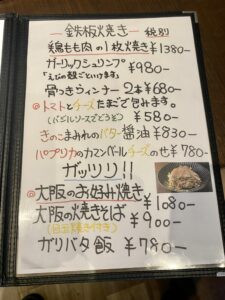 鉄板焼き 税別
鶏もも肉の1枚焼き¥1380-
ガーリックシュリンプ
「えびの殻ごといけます」 ¥980-
骨つきウィンナー 2本¥680-
@トマトとチーズたまごで包みます。
(バジルソースでどうぞ) ¥580-
きのこまみれのバター醤油¥830-
パプリカのカマンベールチーズのせ¥780-
ガッツリ!!
@大阪のお好み焼き ¥1080-
大阪の焼きそば ¥900-
(目玉焼き付き)
ガリバタ飯 ¥780-